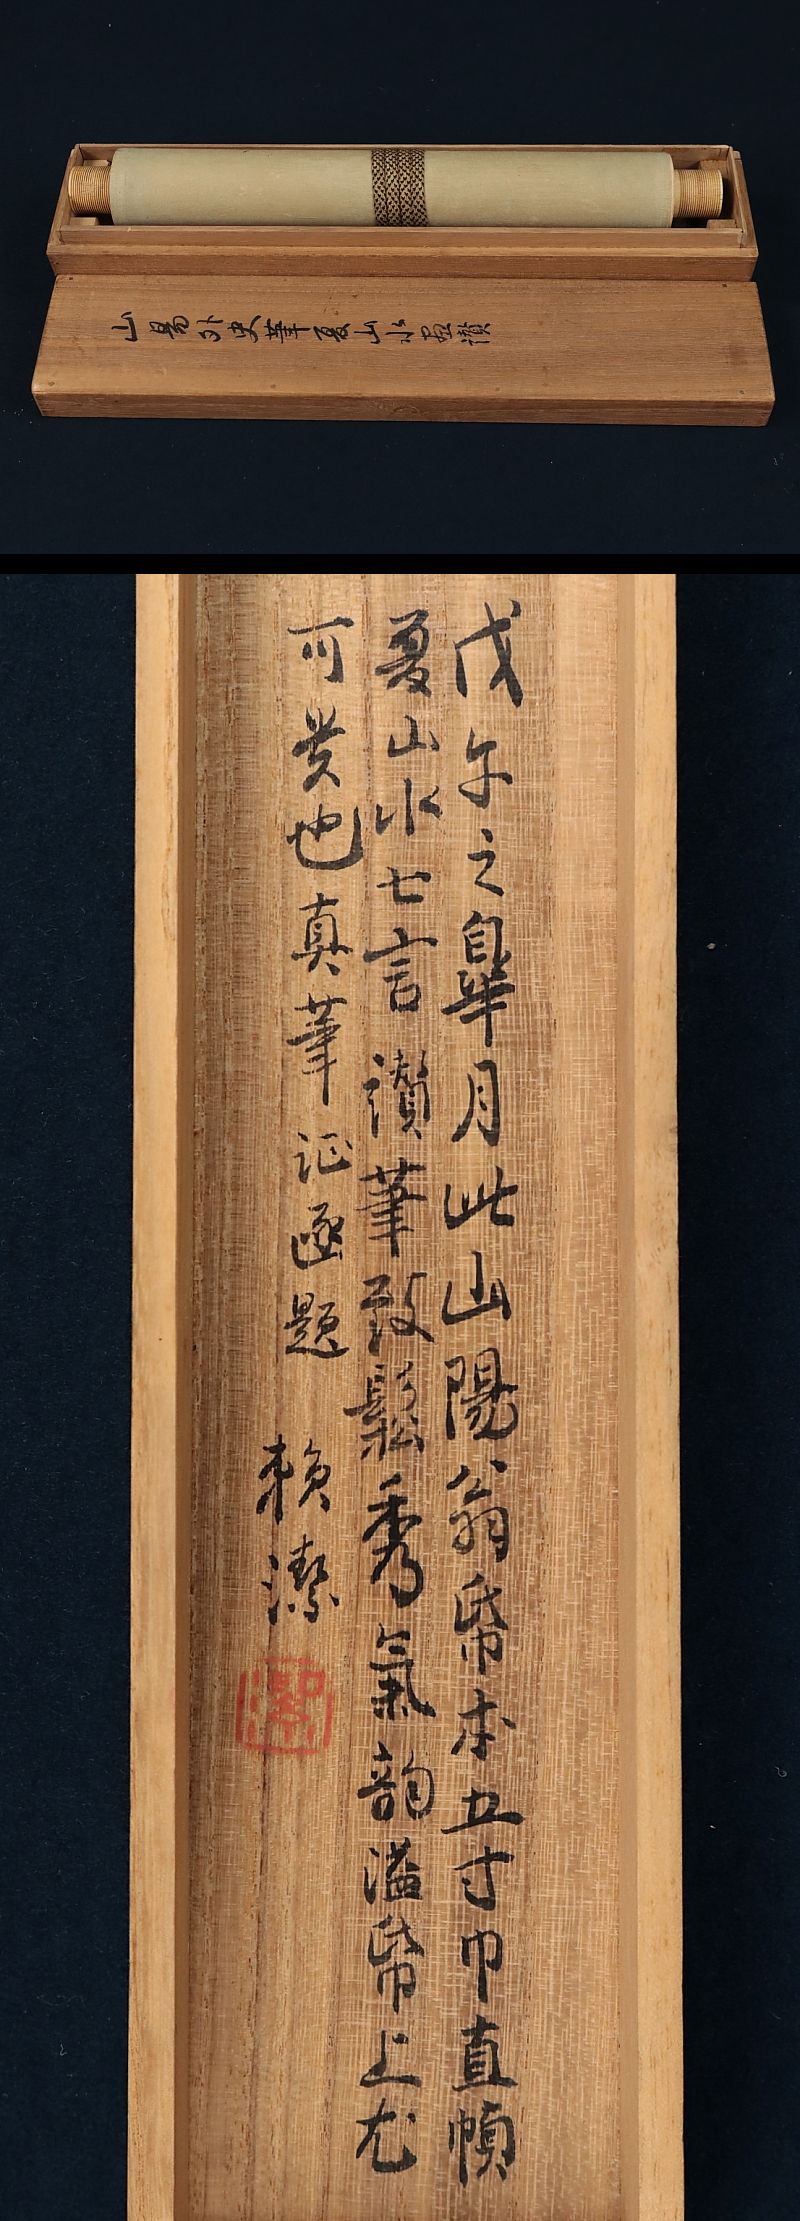 山陽外史筆夏山水画讃
戊午之皐月此山陽翁帋本五寸巾直幀
夏山水七言讃筆致鬆秀氣韵溢帋上尤
可貴也真筆証函題
頼潔
潔